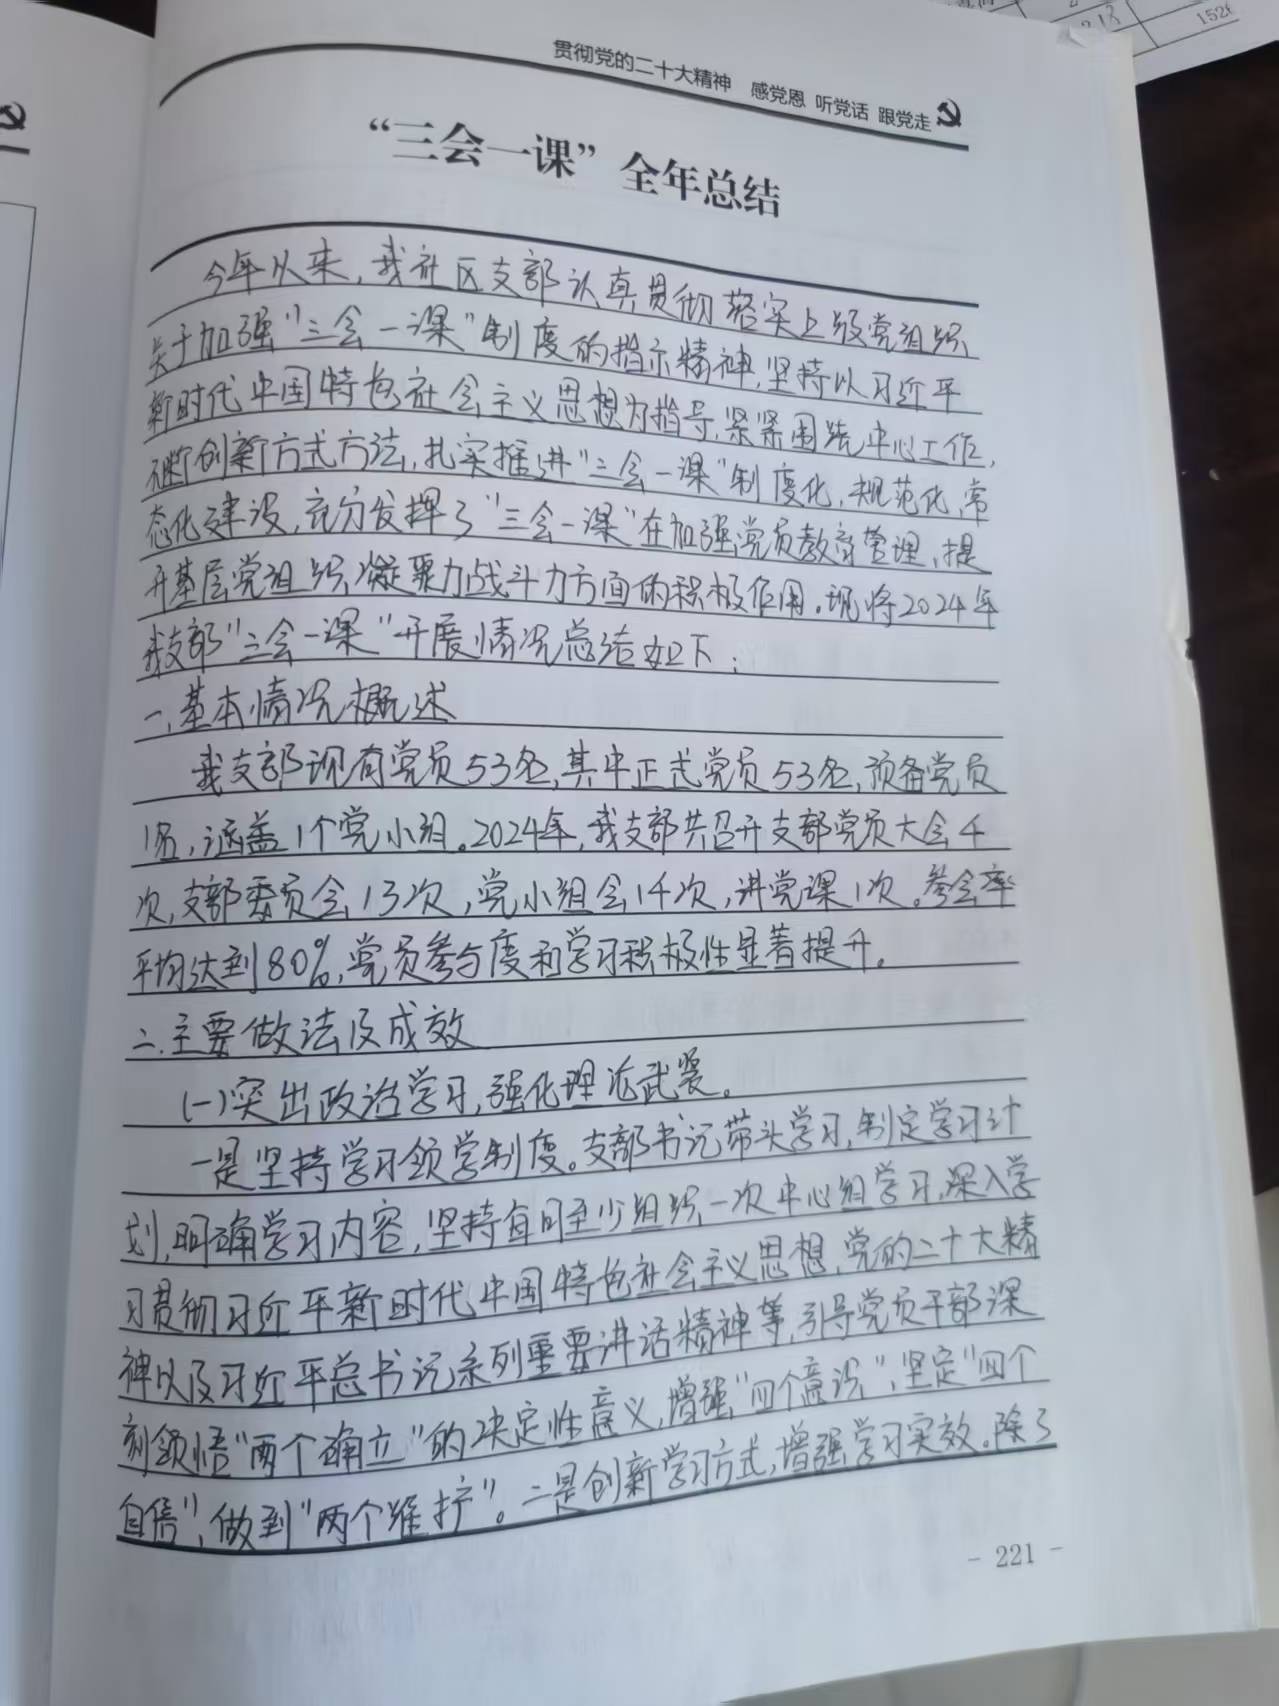 贯彻党的二十大精神 感党恩 听党话 跟党走
“三会一课”全年总结
今年以来,我社区支部认真贯彻落实上级党组织
关于加强“三会一课”制度的指示精神,坚持以习近平
新时代中国特色社会主义思想为指导,紧紧围绕中心工作,
不断创新方式方法,扎实推进“三会一课”制度化,规范化,常
态化建设,充分发挥了“三会一课”在加强党员教育管理,提
升基层党组织凝聚力战斗力方面的积极作用。现将2024年
我支部“三会一课”开展情况总结如下:
一,基本情况概述
我支部现有党员53名,其中正式党员53名,预备党员
1名,涵盖1个党小组。2024年,我支部共召开支部党员大会4
次,支部委员会13次,党小组会14次,讲党课1次。参会率
平均达到80%,党员参与度和学习积极性显著提升。
二.主要做法及成效
(一)突出政治学习,强化理论武装。
一是坚持学习领学制度。支部书记带头学习,制定学习计
划,明确学习内容,坚持每月至少组织一次中心组学习,深入学
习贯彻习近平新时代中国特色社会主义思想,党的二十大精
神以及习近平总书记系列重要讲话精神等,引导党员干部深
刻领悟“两个确立”的决定性意义,增强“四个意识”,坚定“四个
自信”,做到“两个维护”。二是创新学习方式,增强学习实效。除了
- 221 -
213
152